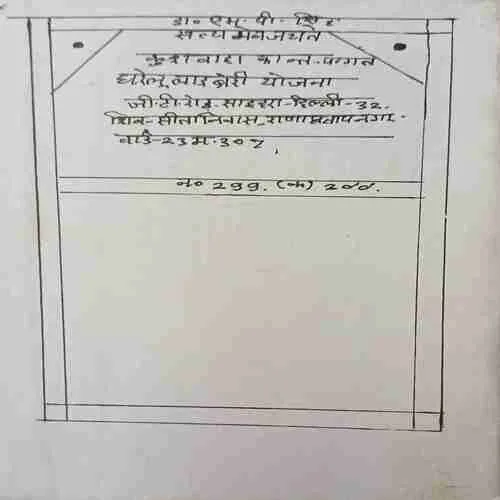 डा० एम. पी. सिंह
सत्य मेव जयते
कुशवाहा कान्त पगत
घरेलू लाइब्रेरी योजना
जी.टी. रोड, शाहदरा-दिल्ली-32.
शिव-सीता निवास, राणा प्रताप नगर.
वार्ड-23 म. 307
न० 299. (क) 200.